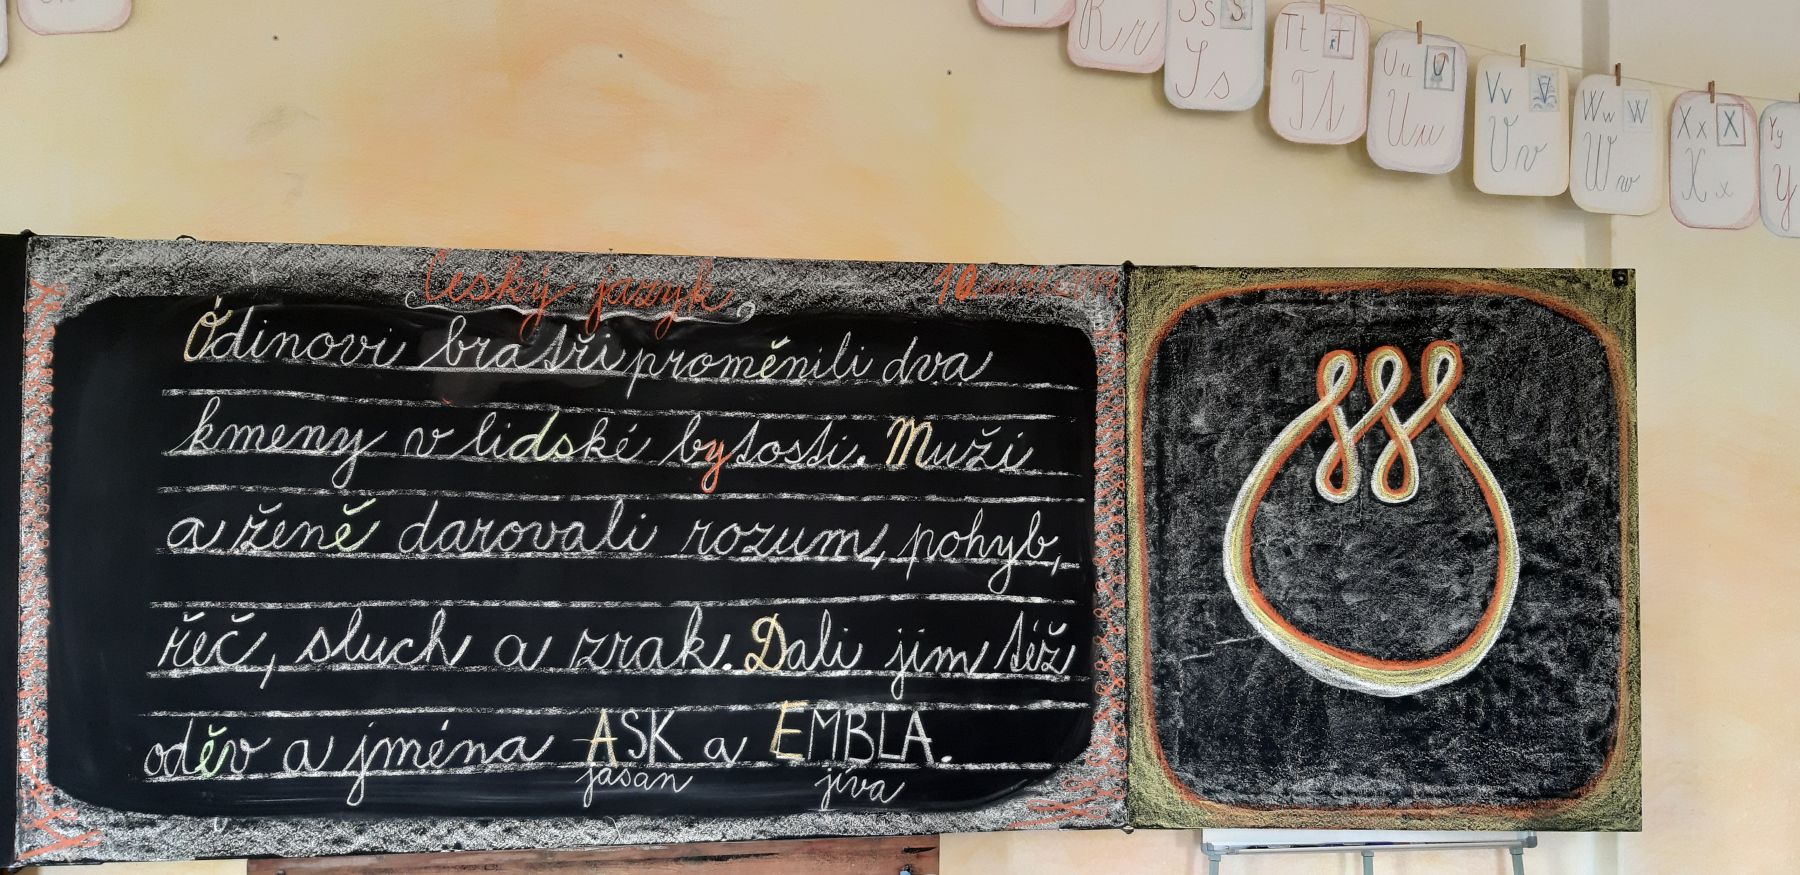 Ss S
Rr
Ss
Tt T
Tt
Uu U
Uu
Vv V
Vv
Ww W
Ww
Xx X
Xx
Yy
Y
Český jazyk
10
Ódinovi bratři proměnili dva
kmeny v lidské bytosti. Muži
a ženě darovali rozum, pohyb,
řeč, sluch a zrak. Dali jim též
oděv a jména ASK a EMBLA.
jasan jíva